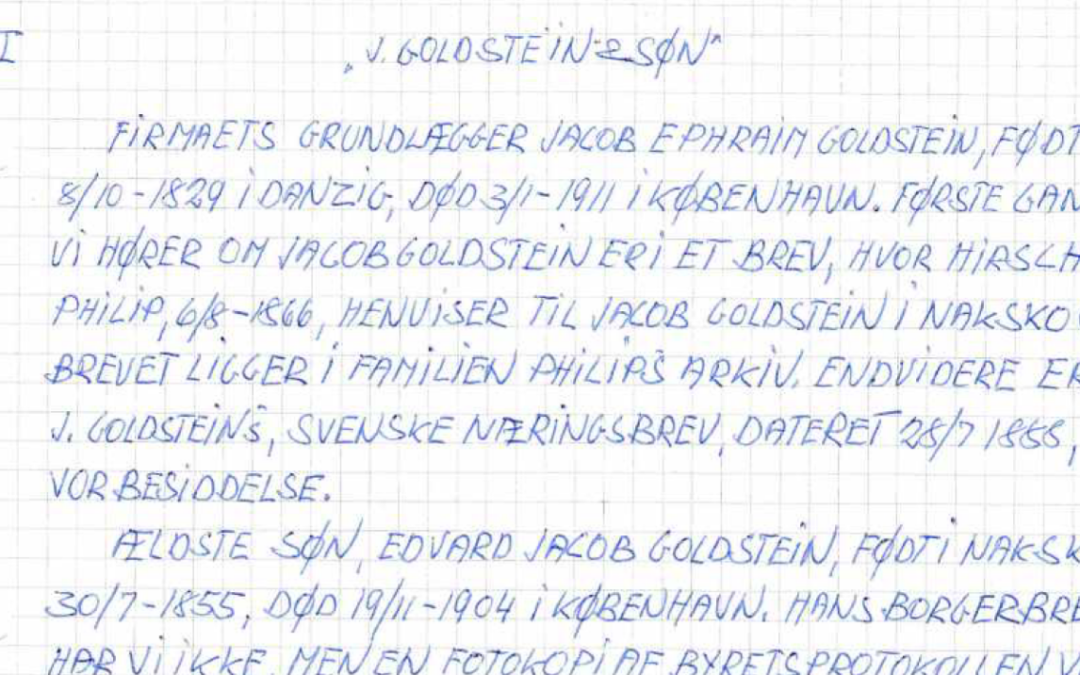 I
"J. GOLDSTEIN & SØN"
FIRMAETS GRUNDLÆGGER JACOB EPHRAIM GOLDSTEIN, FØDT
8/10-1829 I DANZIG, DØD 3/1-1911 I KØBENHAVN. FØRSTE GAN
VI HØRER OM JACOB GOLDSTEIN ER I ET BREV, HVOR HIRSCH
PHILIP, 6/8-1866, HENVISER TIL JACOB GOLDSTEIN I NAKSKO
BREVET LIGGER I FAMILIEN PHILIPS ARKIV. ENDVIDERE ER
J. GOLDSTEINS, SVENSKE NÆRINGSBREV, DATERET 28/7 1858,
VOR BESIDDELSE.
ÆLDSTE SØN, EDVARD JACOB GOLDSTEIN, FØDT I NAKSK
30/7-1855, DØD 19/11-1904 I KØBENHAVN. HANS BORGERBRE
HAR VI IKKE, MEN EN FOTOKOPI AF BYRETSPROTOKOLLEN V